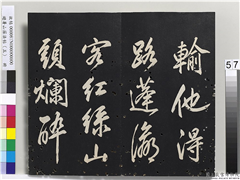 輸他得
路蓬瀛
客紅綠山
頭爛醉
57